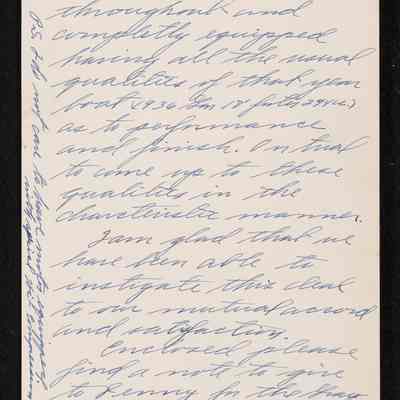 throughout and
completly equipped
having all the usual
qualities of that year
boat (1936
as to performance
and finish. On trial
to come up to these
qualities in the
charcteristic manner.
I am glad that we
have been able to
instigate this deal
to our mutual accord
and satisfaction.
Enclosed please
find a note to give
to Denny for the
P.S. I do not care to